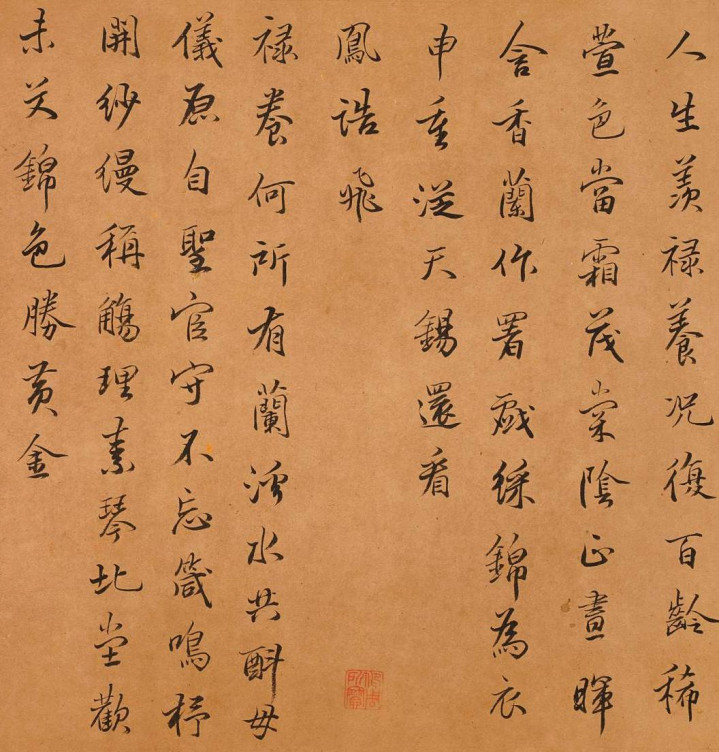 人生羨祿養況復百齡稀
萱色當霜茂棠陰正晝暉
含香蘭作署戲綵錦為衣
申重從天錫還看
鳳誥飛
祿養何所有蘭滫水共斟母
儀原自聖官守不忘箴鳴杼
開紗縵稱觴理素琴北堂歡
未艾錦色勝黃金